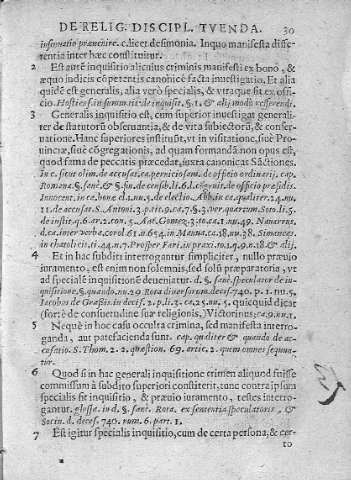 DE RELIG. DISCIPL. TVENDA. 30
infamatio præuenire. c. licet de simonia. In quo manifesta diffe-
rentia inter hæc constituitur.
2 Est autē inquisitio alicuius criminis manifesti ex bono, &
æquo indicis cōpetentis canonicè facta inuestigatio. Et alia
quidē est generalis, alia verò specialis, & vtraque fit ex offi-
cio. Hostiens. in summ. tit. de inquisit. §. 1. & alij modò referendi.
3 Generalis inquisitio est, cum superior inuestigat generali-
ter de statutorū obseruantia, & de vita subiectorū, & conser-
uatione. Hanc superiores instituūt, vt in visitatione, suę Pro-
uinciæ, suę cōgregationis, ad quam formandā non opus est,
quod fama de peccatis præcedat, iuxta canonicat Sāctiones.
In c. sicut olim de accusat. ca. perniciosam. de officio ordinarij. cap.
Romana. §. sanè, & §. fin. de censib. li. 6. l. cōgruit. de officio præsidis.
Innocent. in ca. bonæ el. 1. nu. 5. de electio. Abb. in ca. qualiter. 24. nu.
11. de accusat. S. Antoni. 3. part. 9. ca. 7. §. 3. ver. quartum. Soto. li. 5.
de instit. q. 6. ar. 2. con. 2.
d. ca. inter verba. corol. 61. nu. 654. in Manua. ca. 18. nu. 38. Simancas.
in cathol. c. tit. 44. nu. 7. Prosper. Fari. in praxi. to. 1. q. 9. n. 18. & alij.
4 Et in hac subditi interrogantur simpliciter, nullo præuio
iuramento, est enim non solemnis, sed solū præparatoria, vt
ad specialē inquisitionē deueniatur. d. §. sanè, speculator de in-
quisitione. §. quando. nu. 29. Rota diuersorum decis. 740. p. 1. nu. 5.
Iacobus de Graffiis in decis. 2. p. li. 3. ca. 25. nu. 5. quicquid dicat
(fortè de consuetudine suæ religionis,) Victorinus, ca. 9. nu. 1.
5 Nequè in hoc casu occulta crimina, sed manifesta interro-
ganda, aut patefacienda sunt. cap. qualiter & quando de ac-
cusatio. S. Thom. 2. 2. quæstion. 69. artic. 2. quem omnes sequun-
tur.
6 Quod si in hac generali inquisitione crimen aliquod fuisse
commissum à subdito superiori constiterit, tunc contra ipsum
specialis fit inquisitio, & præuio iuramento, testes interro-
gantur. glossa. in d. §. sanè. Rota. ex sententia speculatoris, &
Socin. d. deces. 740. num. 6. part. 1.
7 Est igitur specialis inquisitio, cum de certa persona, & cer-
to